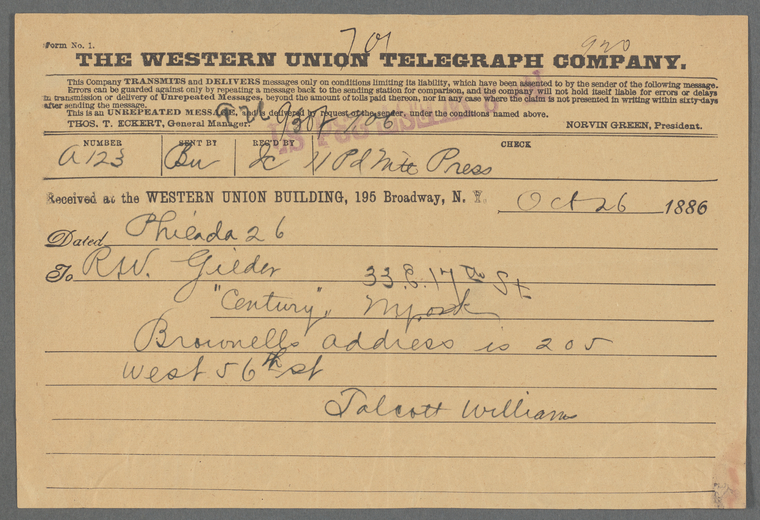 Form No. 1.
701
920
THE WESTERN UNION TELEGRAPH COMPANY.
This Company TRANSMITS and DELIVERS messages only on conditions limiting its liability, which have been assented to by the sender of the following message.
Errors can be guarded against only by repeating a message back to the sending station for comparison, and the company will not hold itself liable for errors or delays
in transmission or delivery of Unrepeated Messages, beyond the amount of tolls paid thereon, nor in any case where the claim is not presented in writing within sixty days
after sending the message.
This is an UNREPEATED MESSAGE, and is delivered by request of the sender, under the conditions named above.
THOS. T. ECKERT, General Manager. NORVIN GREEN, President.
NUMBER SENT BY REC'D BY CHECK
a 123 Bu 11 Pd Nite Press
Received at the WESTERN UNION BUILDING, 195 Broadway, N. Y. Oct 26 1886
Dated Philada 26
To R.W. Gilder 33 E. 17th St
"Century",
Brownells address is 205
West 56th st
Talcott Williams